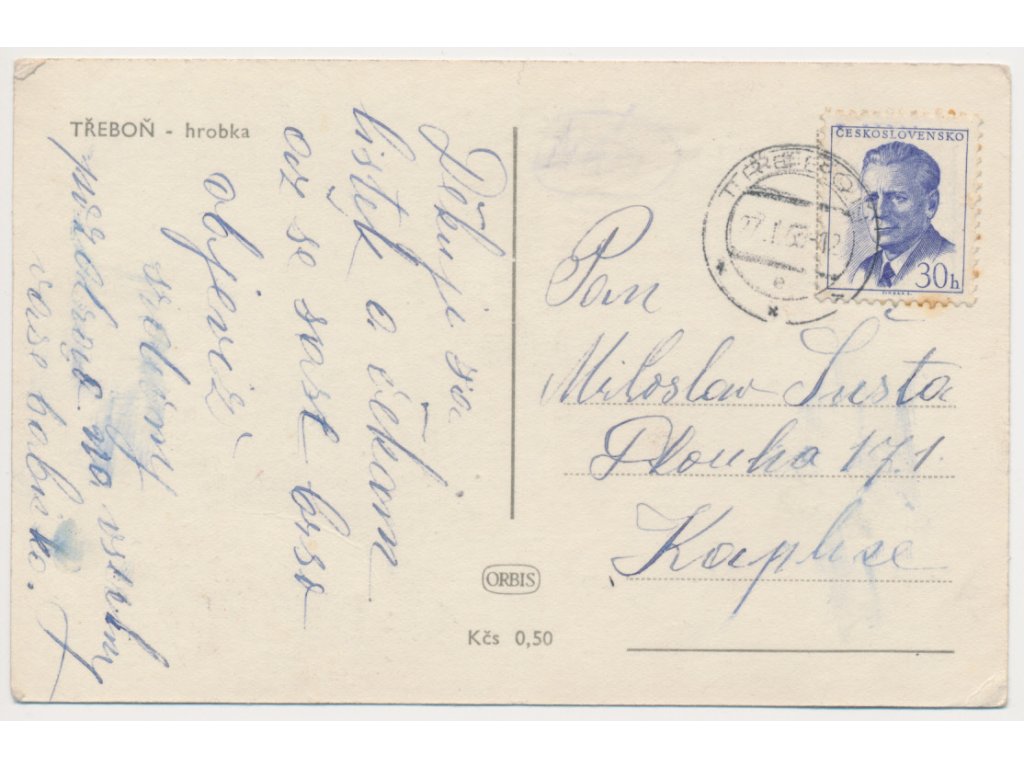 TŘEBOŇ - hrobka
Děkuji za
lístek a čekám
až se zase brzo
objevíš.
srdečný
pozdrav na všechny
vaše babička.
ORBIS
Kčs 0,50
ČESKOSLOVENSKO
30h
TŘEBOŇ
27.1.63-12
e
Pan
Miloslav Šusta
Dlouhá 171.
Kaplice